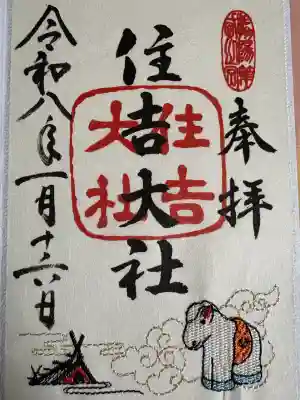 奉拝
住吉大社
住吉大社
令和八年一月十六日